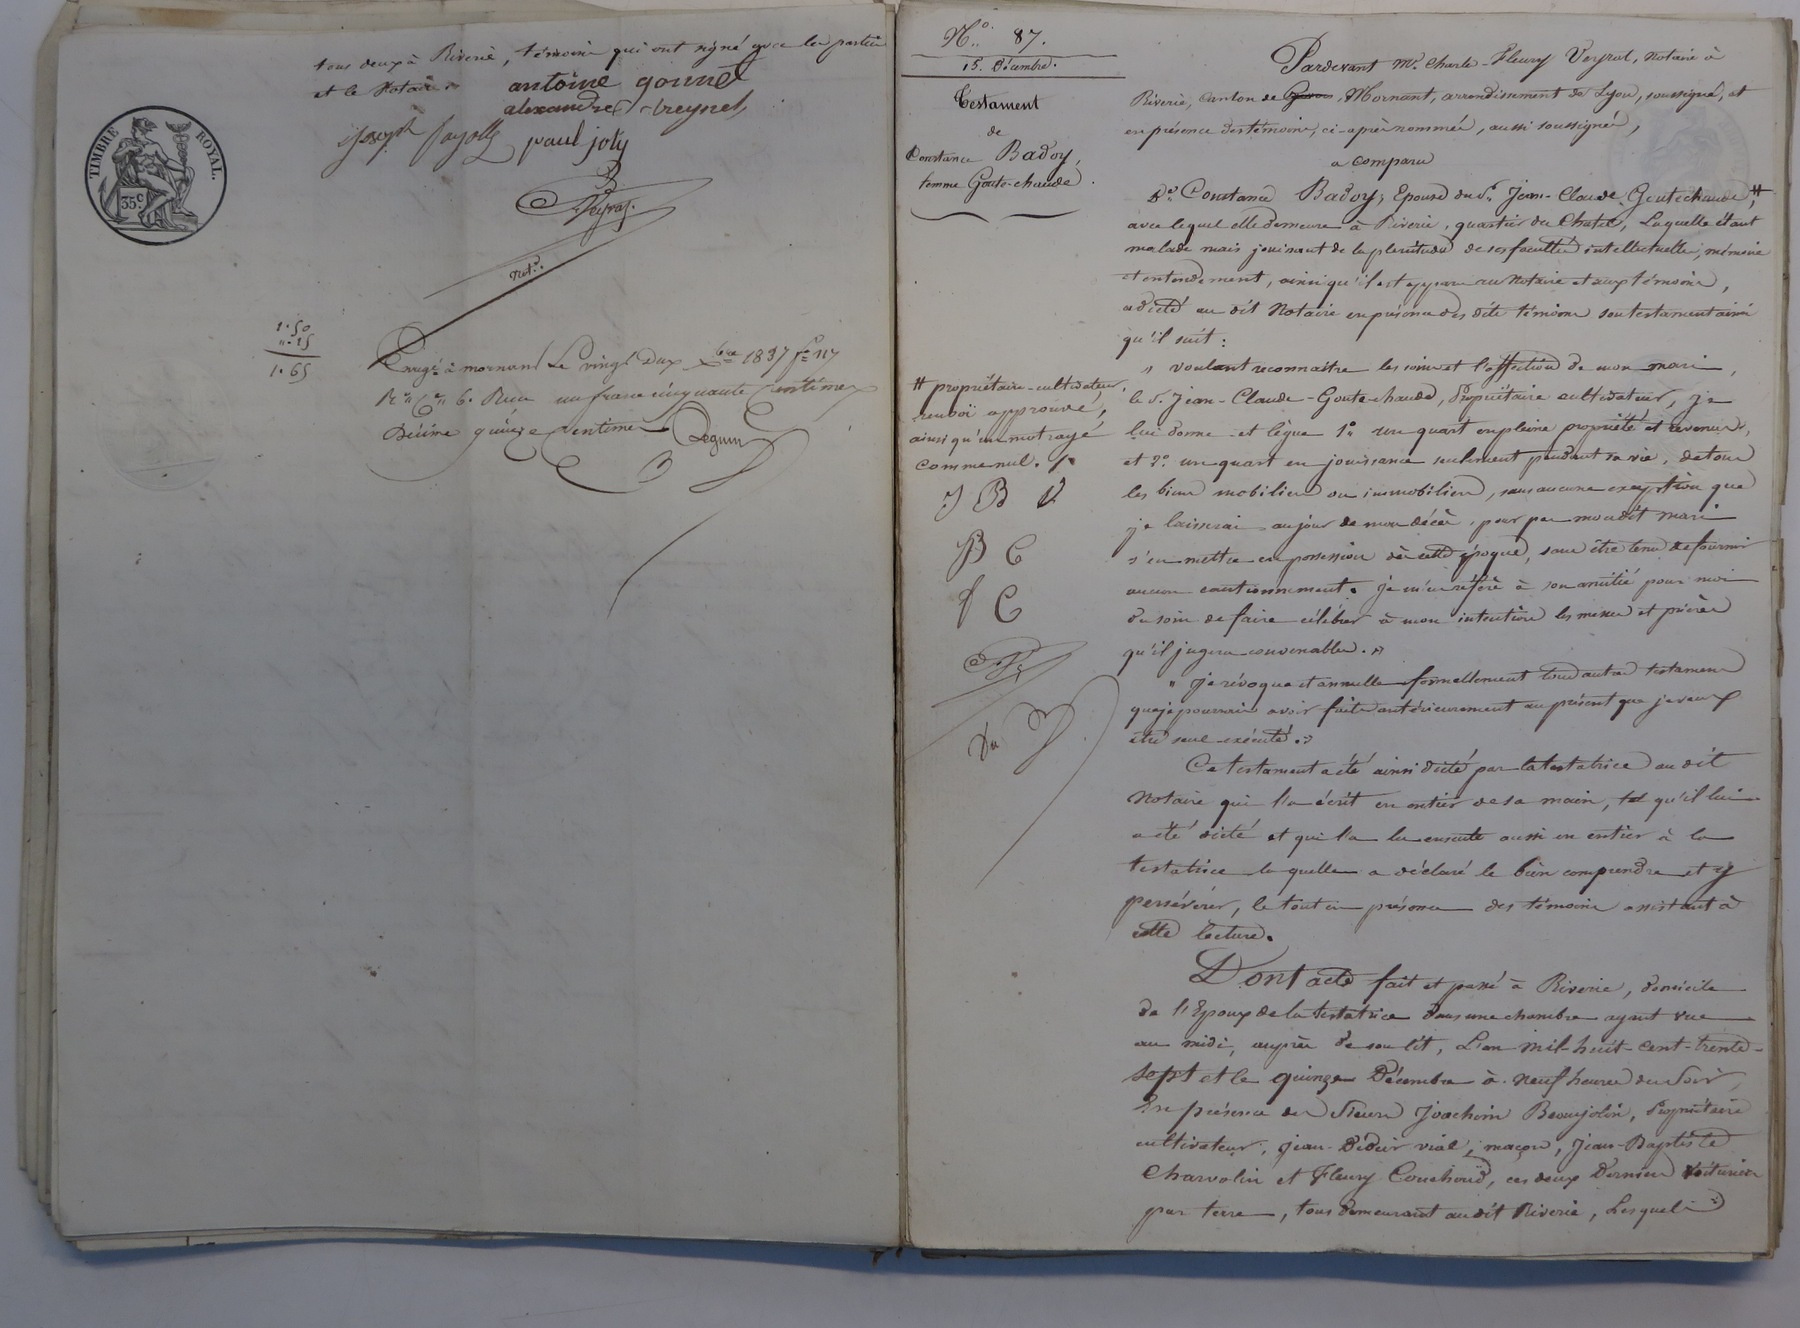 tous deux à Riverie, témoins qui ont signé avec les parties
et le Notaire.
antoine gonnet
alexandre Vreynet
joseph fayolle paul joly
Veyrat.
Not.re
TIMBRE ROYAL.
35 c
1.50
"-15
1.65
Enreg.é à mornant Le vingt Deux Xbre 1837 f° 117
R.° C.e 6. Reçu un franc cinquante centimes
Décime quinze centimes
N.° 87.
15. Décembre.
Testament
de
Constance Badoy,
femme Goute-chaude.
Pardevant M.e Charle-Fleury Veyrat, Notaire à
Riverie, canton de Mornant, arrondissement de Lyon, soussigné, et
en présence des témoins, ci-après nommés, aussi soussignés,
a comparu
D.e Constance Badoy, Epouse du S.r Jean-Claude Goutechaude, #
avec lequel elle demeure à Riverie, quartier du Chatel, Laquelle étant
malade mais jouissant de la plénitude de ses facultés intellectuelles, mémoire
et entendement, ainsi qu'il est apparu au Notaire et aux témoins,
a dicté au dit Notaire en présence des dits témoins son testament ainsi
qu'il suit :
" voulant reconnaitre les soins et l'affection de mon mari,
le S. Jean-Claude-Goute-chaude, Propriétaire cultivateur, je
lui donne et lègue 1.° un quart en pleine propriété et revenus,
et 2.° un quart en jouissance seulement pendant sa vie, de tous
les biens mobiliers ou immobiliers, sans aucune exception que
je laisserai au jour de mon décès, pour par mondit mari
s'en mettre en possession dès cette époque, sans être tenu de fournir
aucun cautionnement. je m'en réfère à son amitié pour moi
du soin de faire célébrer à mon intention les messes et prières
qu'il jugera convenables. "
" Je révoque et annulle formellement tous autres testament
que je pourrais avoir faits antérieurement au présent que je veux
être seul exécuté. "
Ce testament a été ainsi dicté par la testatrice au dit
Notaire qui l'a écrit en entier de sa main, tel qu'il lui
a été dicté et qui l'a lu ensuite aussi en entier à la
testatrice laquelle a déclaré le bien comprendre et y
persévérer, le tout en présence des témoins assistant à
cette lecture.
Dont acte fait et passé à Riverie, domicile
de l'Epoux de la testatrice dans une chambre ayant vue
au midi, auprès de son lit, L'an Mil-huit-cent-trente-
sept et le quinze Décembre à neuf heures du Soir,
En présence des Sieurs Joachim Beaujolin, Propriétaire
cultivateur, jean-Didier vial, maçon, Jean-Baptiste
Charvolin et Fleury Couchoud, ces deux Derniers voituriers
par terre, tous demeurant audit Riverie, Lesquels
# propriétaire-cultivateur,
renvoi approuvé,
ainsi qu'un mot rayé
comme nul.
J B V
J B C
f C